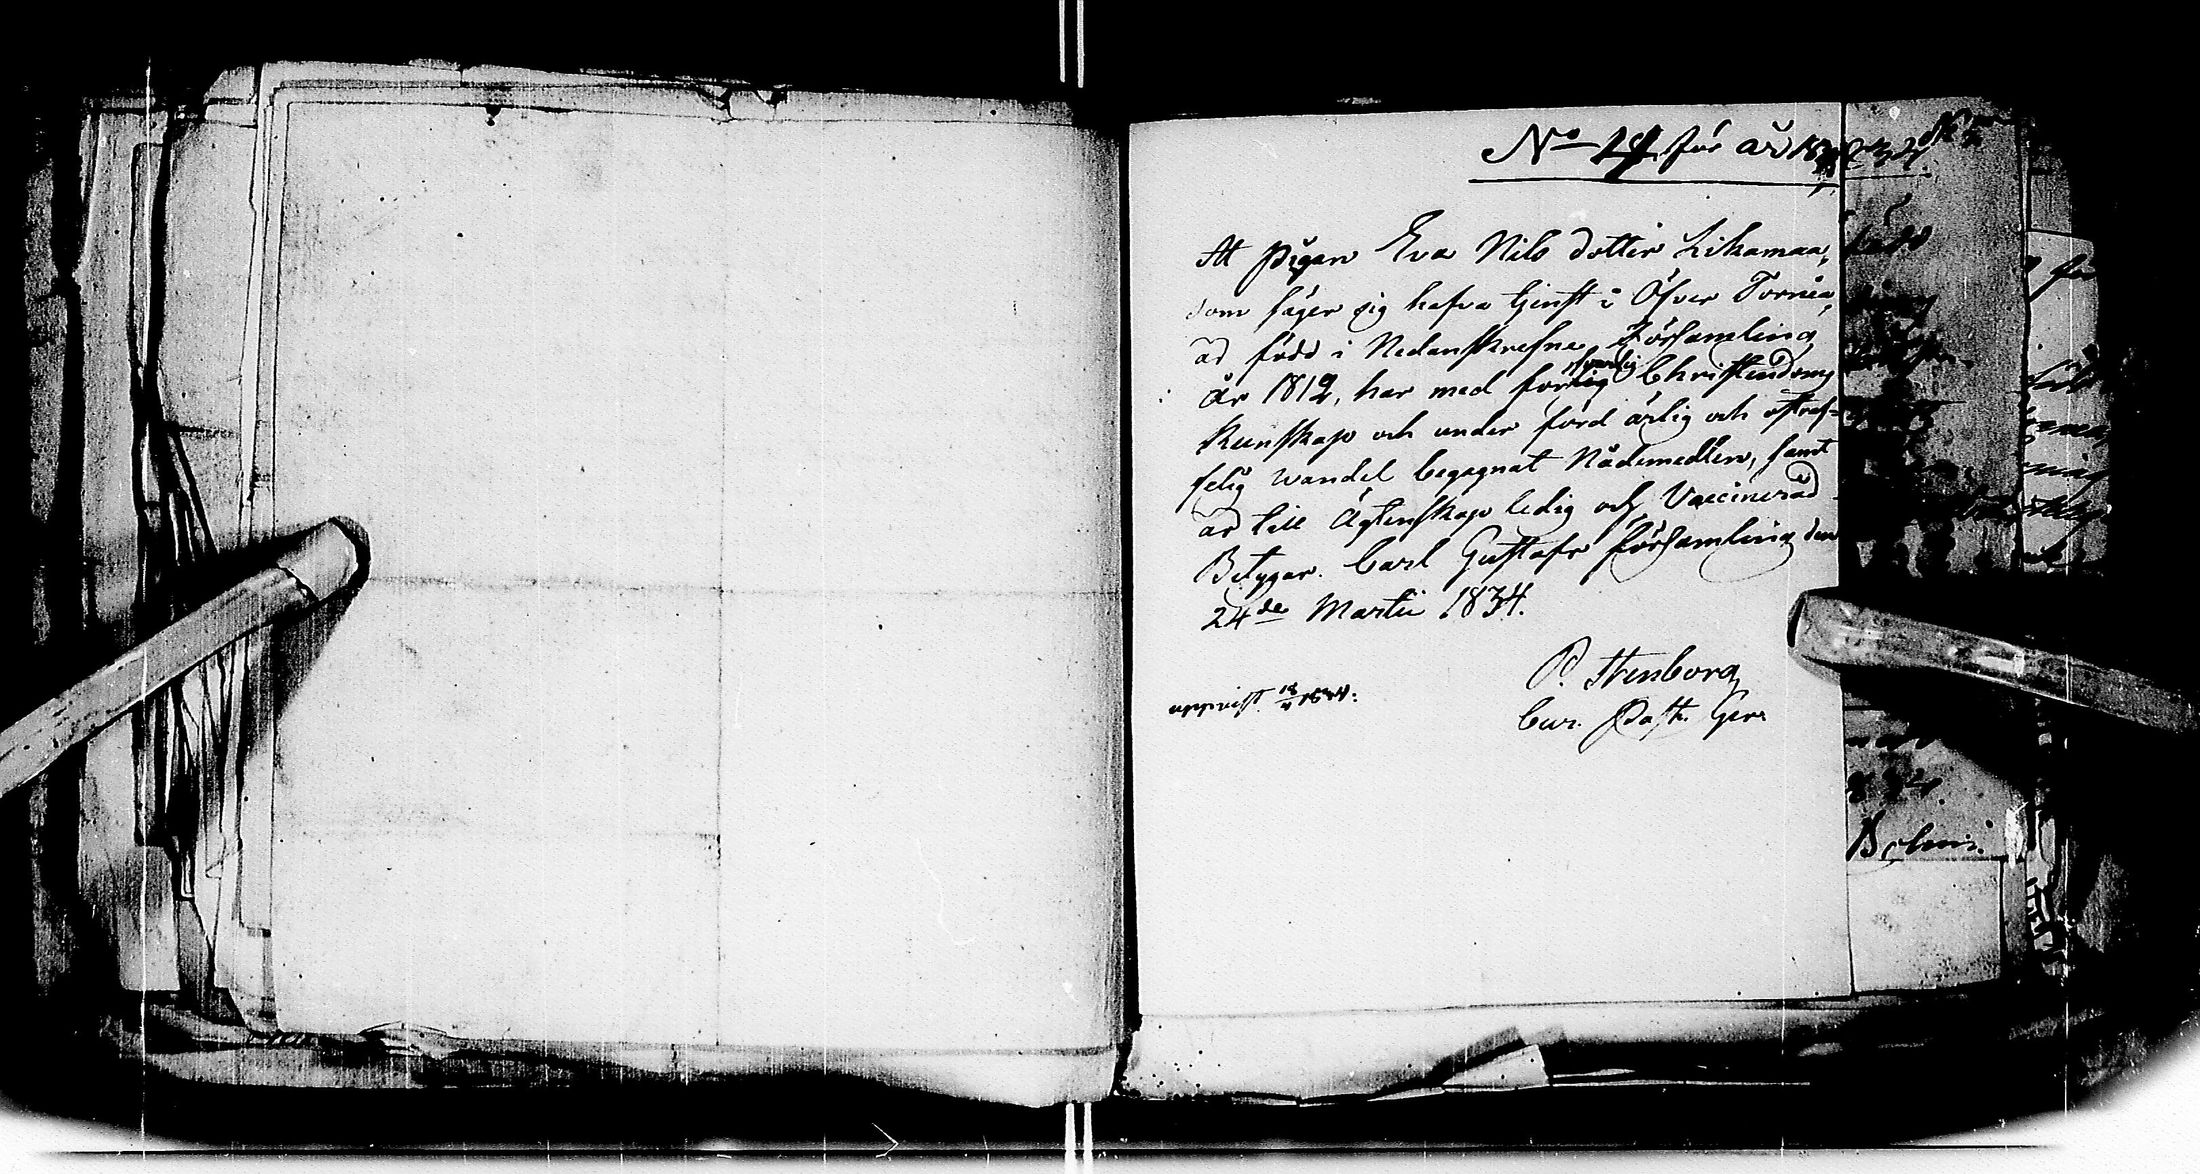 No 14 för år 1834.
At Pigan Eva Nils dotter Likamaa,
som säger sig hafva tjenst i Öfver Torneå,
är född i Nedanskrefne Församling
år 1812, har med Christendoms
Kunskap och under förd ärlig och ostraf-
felig wandel begagnat Nådemedlen, samt
är till Ägtenskap ledig och Vaccinerad
Betygar. Carl Gustafs församling den
24de Martii 1834.
P. Stenborg
Cur. Past. Ger.
uppvist 18/4 1834.